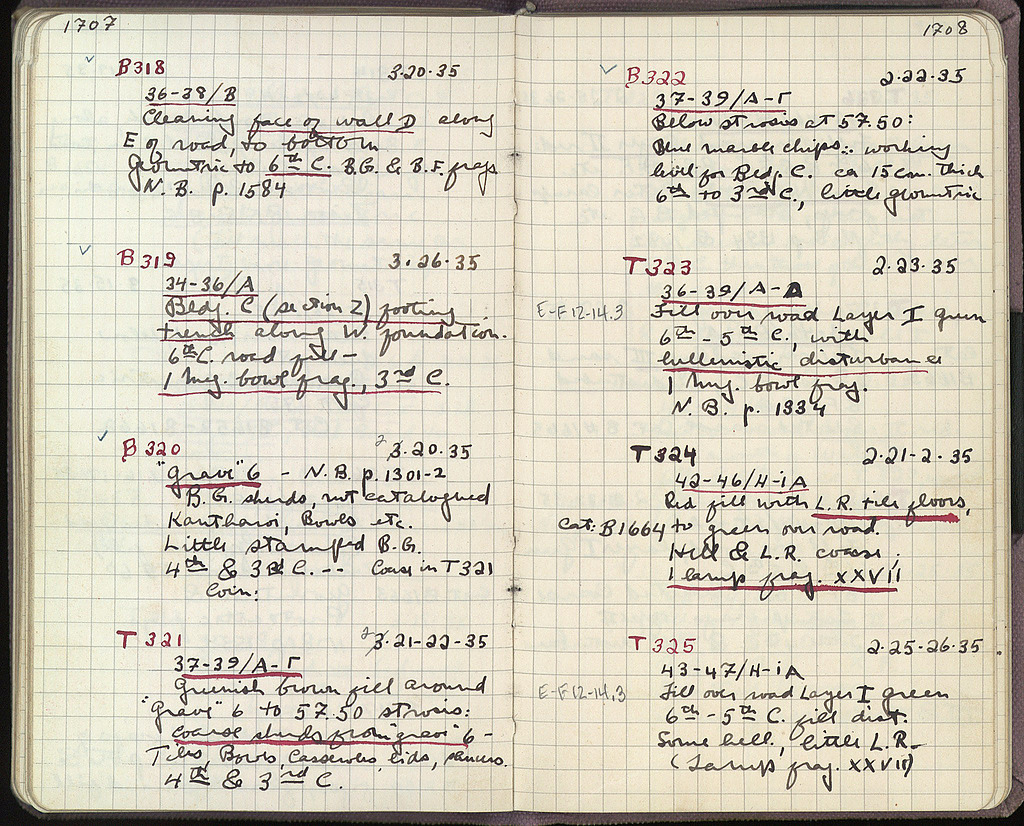 1707
B318 3.20.35
36-38/B
Cleaning face of wall D along
E of road, to bottom
Geometric to 6th C. B.G. & B.F. frags
N.B. p. 1584
B319 3.26.35
34-36/A
Bldg. C (section Z) footing
trench along W. foundation.
6th C. road fill-
1 Meg. bowl frag., 3rd C.
B320 2 3.20.35
"Grave" 6 - N.B. p. 1301-2
B.G. sherds, not catalogued
Kantharoi, Bowls etc.
Little stamped B.G.
4th & 3rd C. -- Coarse in T321
Coin:
T321 2 3.21-22-35
37-39/A-Γ
Greenish brown fill around
"Grave" 6 to 57.50 strosis:
Coarse sherds from "grave" 6 -
Tiles, Bowls, Casseroles, lids, saucers.
4th & 3rd C.
1708
B322 2.22.35
37-39/A-Γ
Below strosis at 57.50:
Blue marble chips.: working
level for Bldg. C. ca 15cm. thick
6th to 3rd C., little geometric
T323 2.23.35
36-39/A-Δ
E-F 12-14.3 Fill over road Layer I green
6th - 5th C., with
hellenistic disturbance
1 Meg. bowl frag.
N.B. p. 1334
T324 2.21-2.35
42-46/H-iA
Red fill with L.R. tile floors,
Cat: B1664 to green over road.
Hell & L.R. coarse,
1 lamp frag. XXVII
T325 2.25-26.35
43-47/H-iA
E-F 12-14.3 Fill over road Layer I green
6th - 5th C. fill dist.
Some hell., little L.R.
(Lamp frag. XXVII)